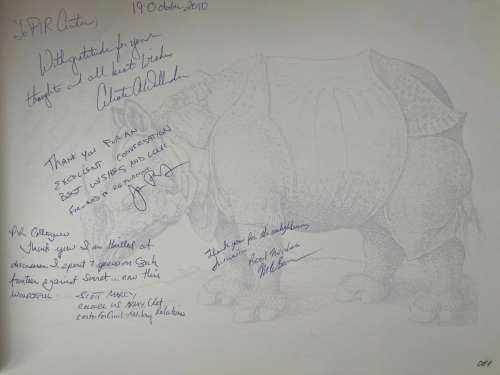 19 October 2010
To PIR Center,
With gratitude for your
thoughts and all best wishes
Celeste A Wallander
THANK YOU FOR AN
EXCELLENT CONVERSATION
BEST WISHES AND LOOK
FORWARD TO RETURNING
PIR Colleagues
Thank you I am thrilled at
discussion I spent 7 years on
against Soviet... now this
WONDERFUL.
SCOTT
COLONEL US ARMY
Center for Civil-Military Relations
Thank you for the enlightening
discussion
Best